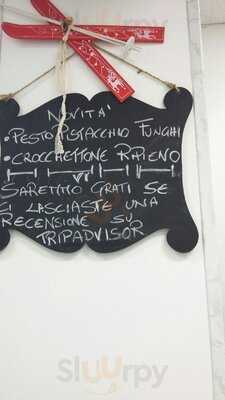 NOVITA'
• PESTO PISTACCHIO FUNGHI
• CROCCHETTONE RIPIENO
SAREMMO GRATI SE
CI LASCIASTE UNA
RECENSIONE SU
TRIPADVISOR
Sluurpy